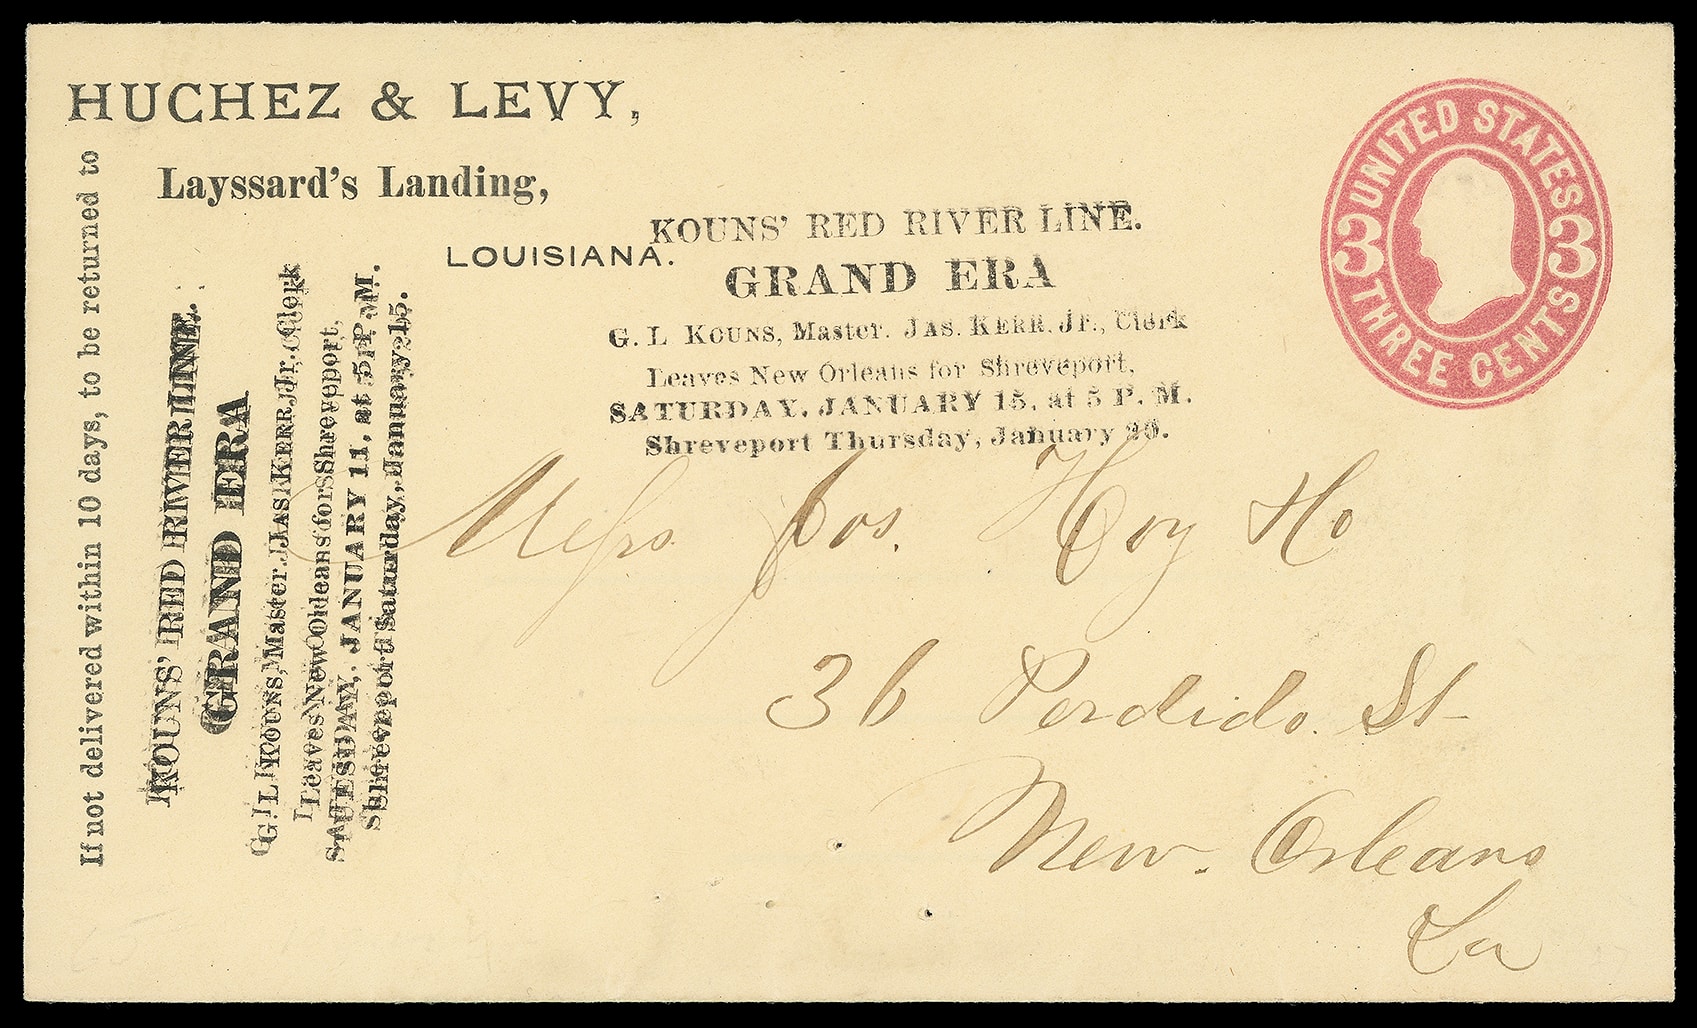 HUCHEZ & LEVY,
Layssard's Landing,
LOUISIANA.
If not delivered within 10 days, to be returned to
KOUNS' RED RIVER LINE.
GRAND ERA
G. L KOUNS, Master. JAS. KERR, Jr., Clerk
Leaves New Orleans for Shreveport,
SATURDAY, JANUARY 15, at 5 P. M.
Shreveport Thursday, January 20.
KOUNS' RED RIVER LINE.
GRAND ERA
G. L KOUNS, Master. JAS KERR, Jr. Clerk
Leaves New Orleans for Shreveport,
TUESDAY, JANUARY 11, at 5 P. M.
Shreveport Saturday, January 15.
UNITED STATES
3 3
THREE CENTS
Messrs Jos. Hoy
36 Perdido St
New. Orleans
La